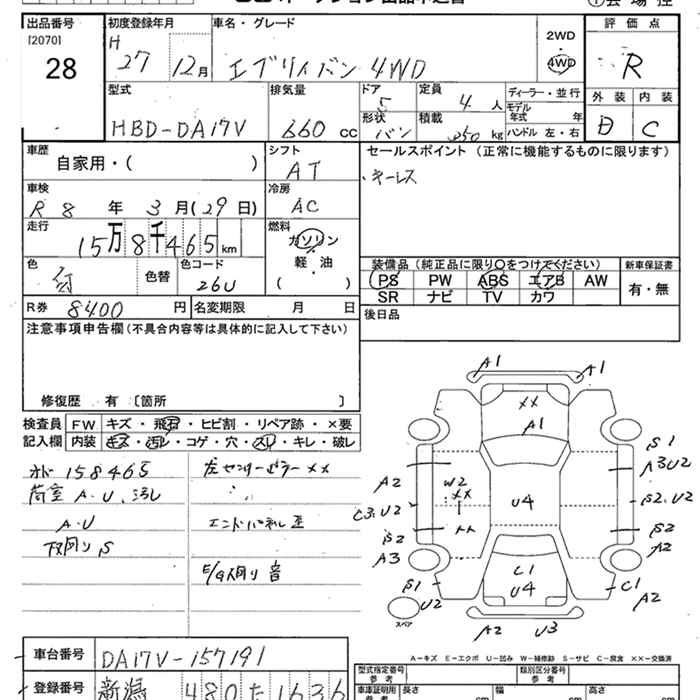 出品番号
[2070]
28
初度登録年月
H
27 12月
車名・グレード
エブリイバン 4WD
2WD
4WD
評価点
R
外装 内装
B C
型式
HBD-DA17V
排気量
660 cc
ドア
5
定員
4 人
形状
バン
積載
350 kg
ディーラー・並行
モデル
年式 年
ハンドル 左・右
車歴
自家用・( )
シフト
AT
セールスポイント (正常に機能するものに限ります)
・キーレス
車検
R 8 年 3 月 (29 日)
冷房
AC
走行
15万8千465 km
燃料
ガソリン
軽・油
( )
色
色替
色コード
26U
装備品 (純正品に限り○をつけてください)
PS PW ABS エアB AW
SR ナビ TV カワ
新車保証書
有・無
R券 8400 円
名変期限 月 日
後日品
注意事項申告欄(不具合内容等は具体的に記入して下さい)
修復歴 有 〔箇所 〕
検査員
記入欄
FW キズ・飛石・ヒビ割・リペア跡・×要
内装 キズ・汚レ・コゲ・穴・スレ・キレ・破レ
158465
荷室 A・U、汚レ
A・U
下廻り S
左センターピラー ××
エンドパネル 歪
E/G廻り 音
A1 A1
××
A1
S1
A3U2
A2
W2
××
U4
S2.U2
C3.U2
S2
S2
A2
A3
C1
U4
S1
U2
C1
A2
スペア
A2 U3
A-キズ E-エクボ U-凹み W-補修跡 S-サビ C-腐食 ××-交換済
車台番号
DA17V-157191
登録番号
新潟 480 た 1636
型式指定番号
参考
類別区分番号
参考
車庫証明用
参考
長さ cm
幅 cm
高さ cm